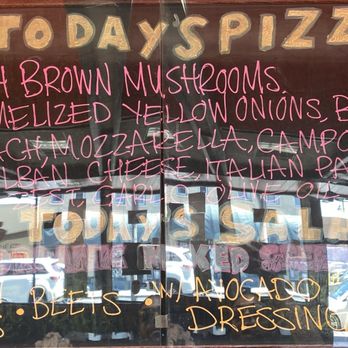 TODAY'S PIZZ
H BROWN MUSHROOMS,
MELIZED YELLOW ONIONS, B
ACH, MOZZARELLA, CAMPO
LBÁN CHEESE, ITALIAN PA
GARLIC OLIVE OIL
TODAY'S SAL
· BEETS · W/ AVOCADO
DRESSING